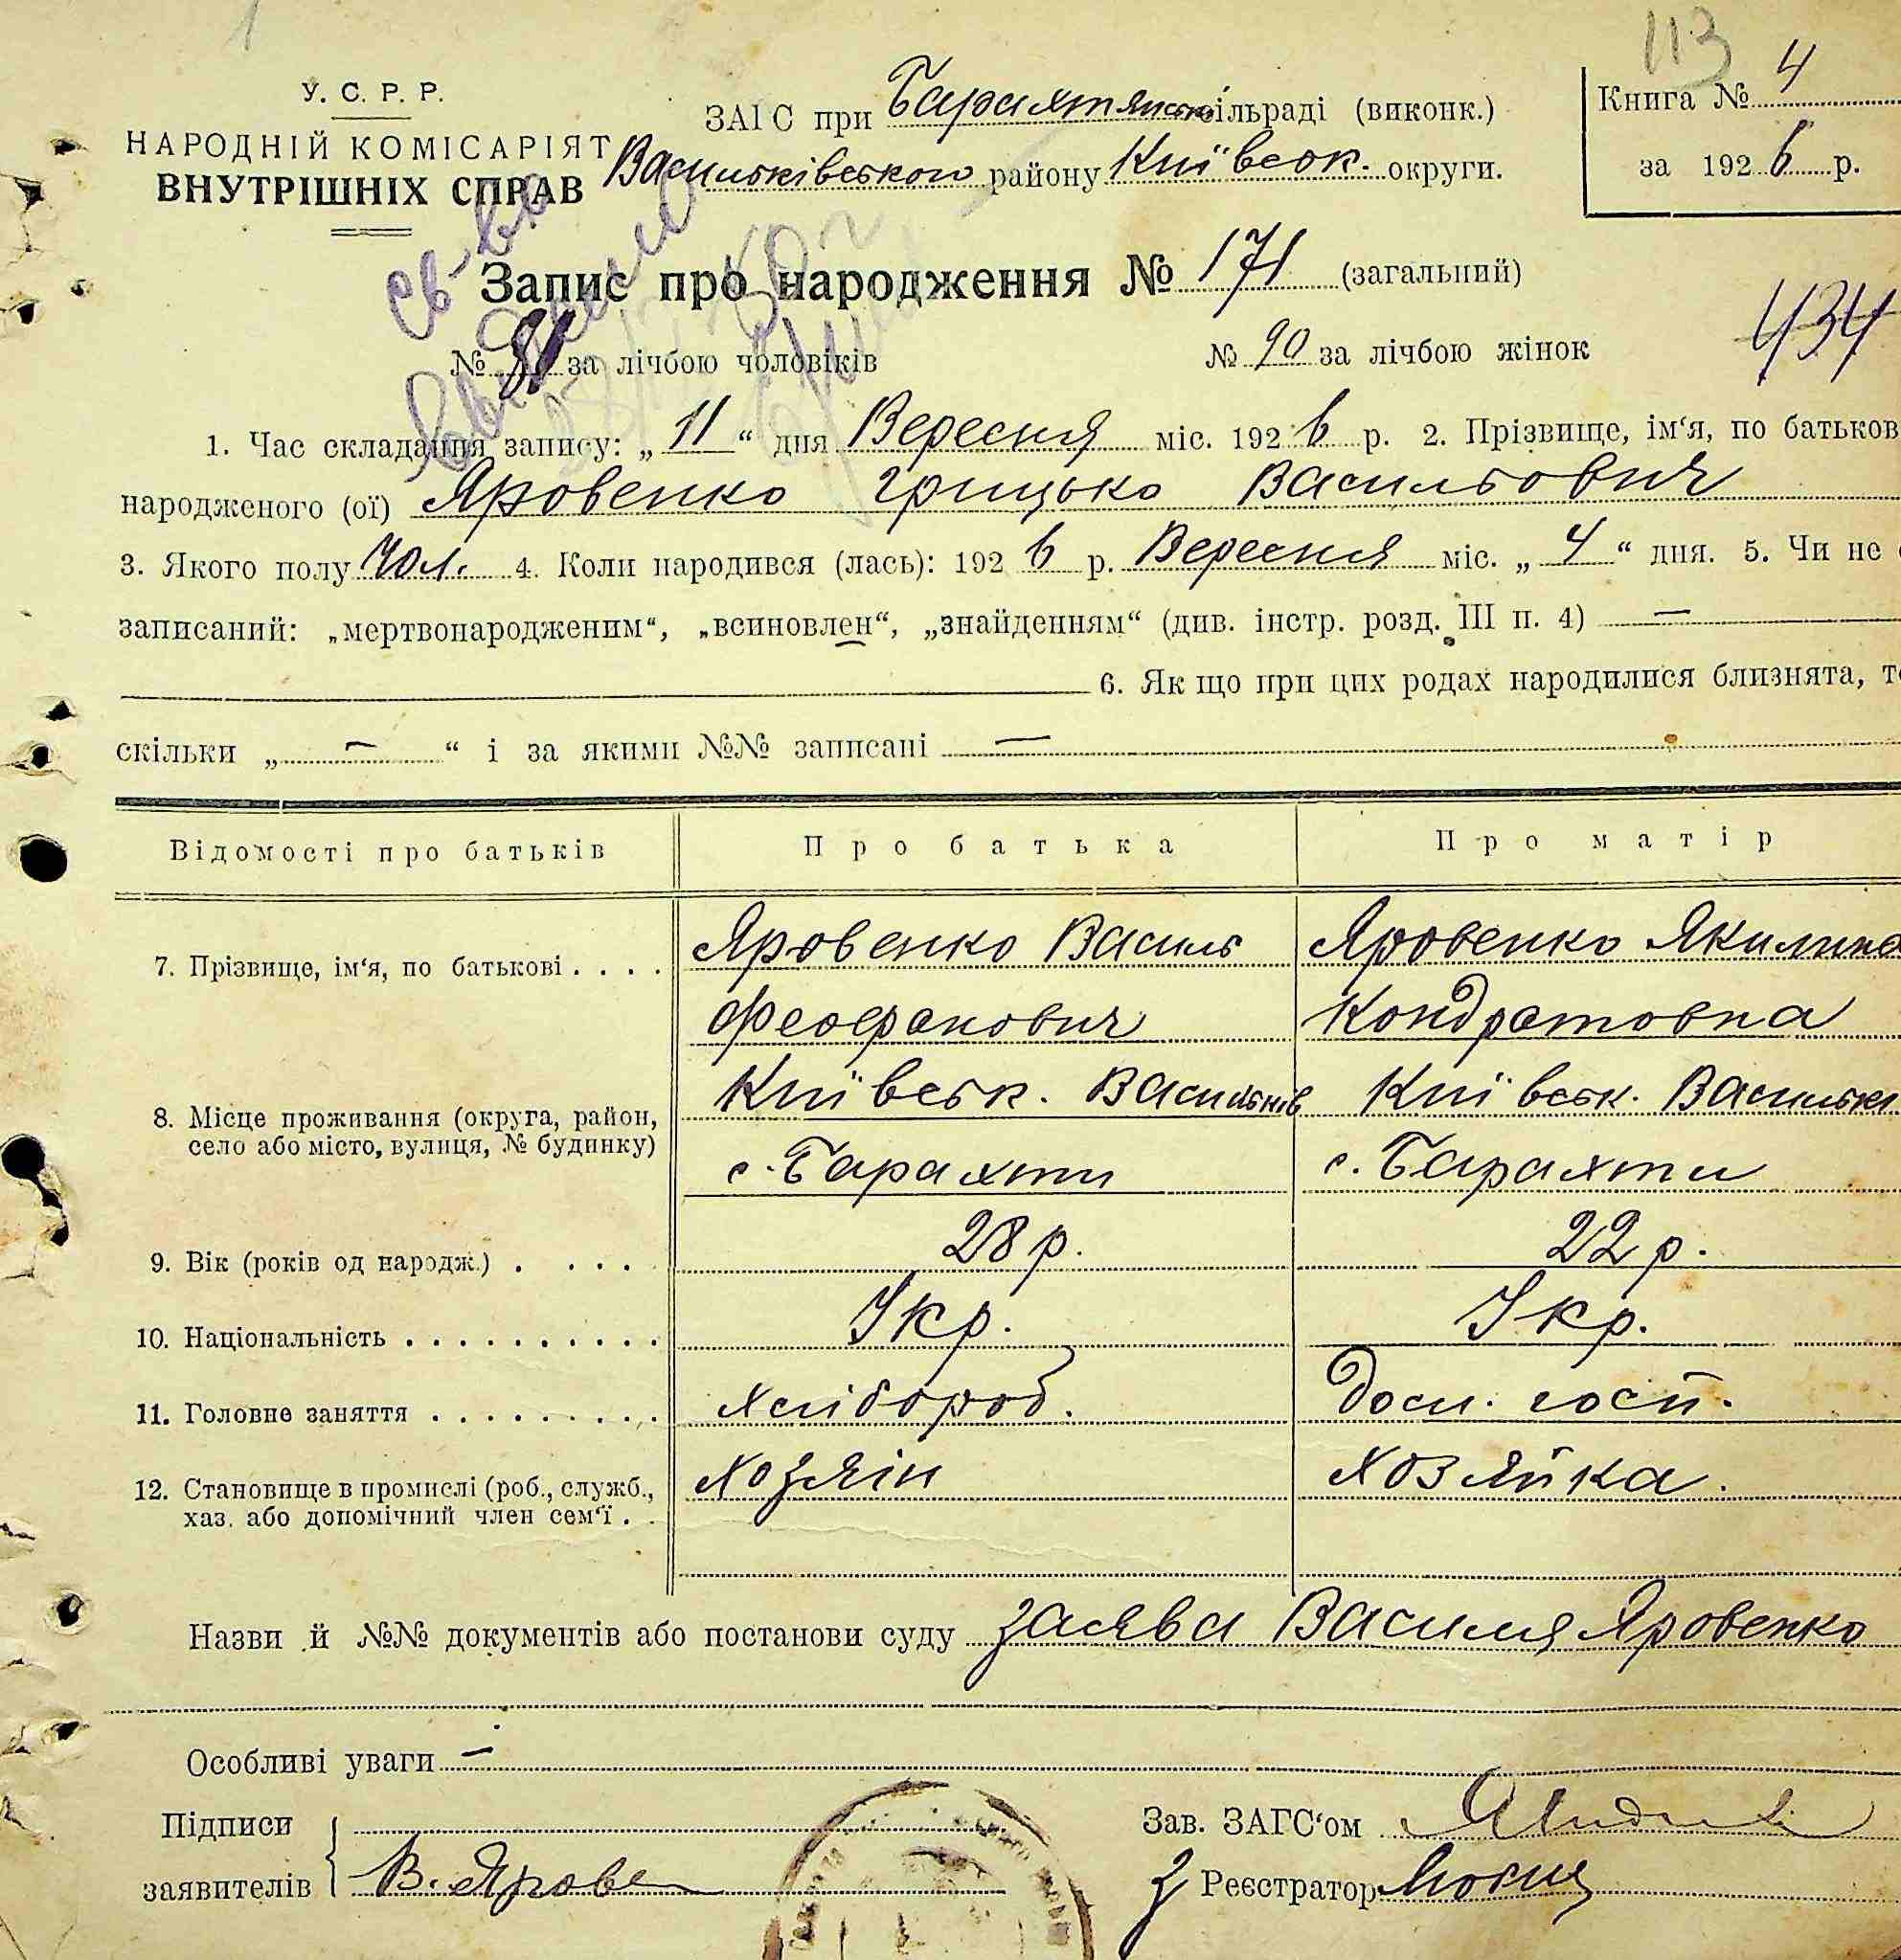 1
113
У. С. Р. Р.
НАРОДНІЙ КОМІСАРІЯТ
ВНУТРІШНІХ СПРАВ
ЗАІС при Барахтянськ сільраді (виконк.)
Васильківського району Київськ. округи.
Книга № 4
за 1926 р.
Запис про народження № 171 (загальний)
№ 81 за лічбою чоловіків № 90 за лічбою жінок
434
св-во
1. Час складання запису: „11“ дня Вересня міс. 1926 р. 2. Прізвище, ім‘я, по батьков
народженого (ої) Яровенко Грицько Васильович
3. Якого полу Чол. 4. Коли народився (лась): 1926 р. Вересня міс. „4“ дня. 5. Чи не
записаний: „мертвонародженим“, „всиновлен“, „знайденням“ (див. інстр. розд. III п. 4) —
6. Якщо при цих родах народилися близнята, т
скільки „ — “ і за якими №№ записані —
Відомості про батьків Про батька Про матір
7. Прізвище, ім‘я, по батькові . . . . Яровенко Василь Яровенко Якилина
Феофанович Кондратовна
8. Місце проживання (округа, район, Київськ. Васильків Київськ. Васильків
село або місто, вулиця, № будинку) с. Барахти с. Барахти
9. Вік (років од народж.) . . . . . 28 р. 22 р.
10. Національність . . . . . . . . . . Укр. Укр.
11. Головне заняття . . . . . . . . . Хлібороб. дом. госп.
12. Становище в промислі (роб., служб., Хозяін Хозяйка.
хаз. або допомічний член сем‘ї . .
Назви й №№ документів або постанови суду заява Василя Яровенко
Особливі уваги —
Підписи
заявителів В.Ярове
Зав. ЗАГС‘ом
Реєстратор